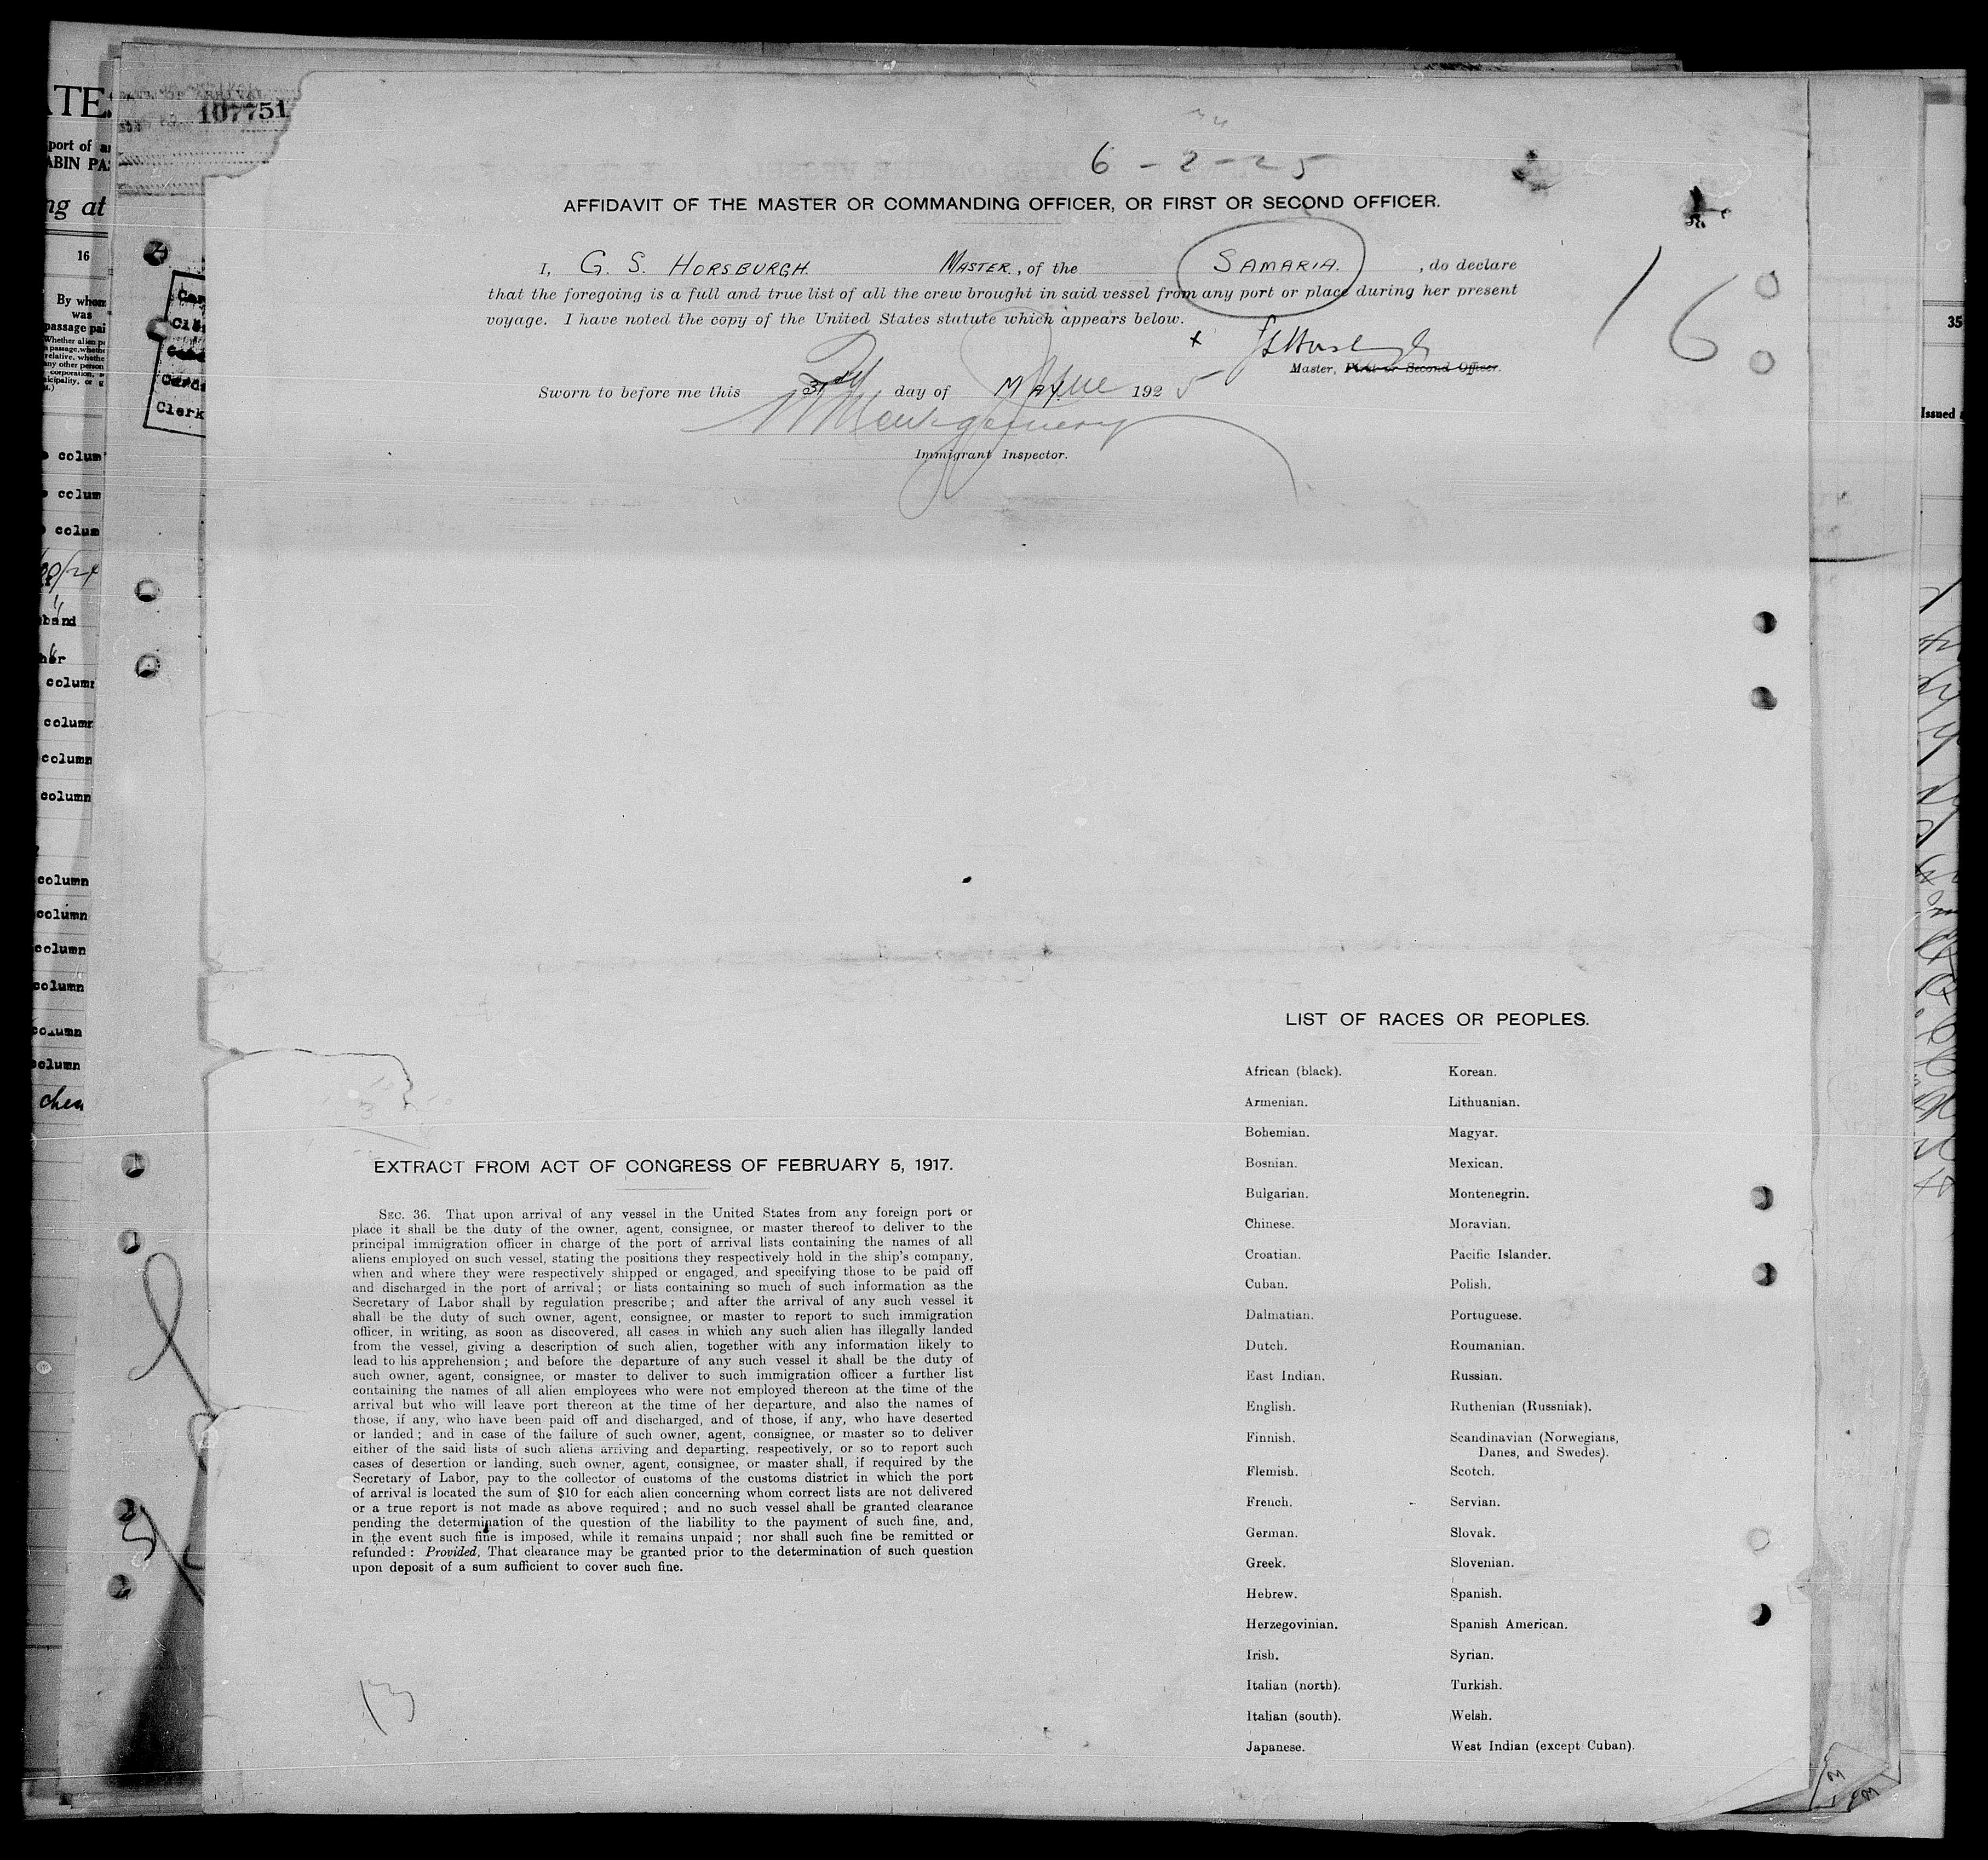 ATE
107751
port of a
ABIN PA
ng at
16
By whom
was
passage pai
6 - 2 - 25
AFFIDAVIT OF THE MASTER OR COMMANDING OFFICER, OR FIRST OR SECOND OFFICER.
I, G. S. HORSBURGH. MASTER., of the SAMARIA. , do declare
that the foregoing is a full and true list of all the crew brought in said vessel from any port or place during her present
voyage. I have noted the copy of the United States statute which appears below.
16
x GSHorsburgh
Master, First or Second Officer.
Sworn to before me this 2nd day of June 1925
Montgomery
Immigrant Inspector.
Clerk
35
Issued
colum
colum
colum
column
column
column
column
column
column
column
column
column
LIST OF RACES OR PEOPLES.
African (black). Korean.
Armenian. Lithuanian.
Bohemian. Magyar.
Bosnian. Mexican.
Bulgarian. Montenegrin.
Chinese. Moravian.
Croatian. Pacific Islander.
Cuban. Polish.
Dalmatian. Portuguese.
Dutch. Roumanian.
East Indian. Russian.
English. Ruthenian (Russniak).
Finnish. Scandinavian (Norwegians,
Danes, and Swedes).
Flemish. Scotch.
French. Servian.
German. Slovak.
Greek. Slovenian.
Hebrew. Spanish.
Herzegovinian. Spanish American.
Irish. Syrian.
Italian (north). Turkish.
Italian (south). Welsh.
Japanese. West Indian (except Cuban).
EXTRACT FROM ACT OF CONGRESS OF FEBRUARY 5, 1917.
SEC. 36. That upon arrival of any vessel in the United States from any foreign port or
place it shall be the duty of the owner, agent, consignee, or master thereof to deliver to the
principal immigration officer in charge of the port of arrival lists containing the names of all
aliens employed on such vessel, stating the positions they respectively hold in the ship's company,
when and where they were respectively shipped or engaged, and specifying those to be paid off
and discharged in the port of arrival; or lists containing so much of such information as the
Secretary of Labor shall by regulation prescribe; and after the arrival of any such vessel it
shall be the duty of such owner, agent, consignee, or master to report to such immigration
officer, in writing, as soon as discovered, all cases in which any such alien has illegally landed
from the vessel, giving a description of such alien, together with any information likely to
lead to his apprehension; and before the departure of any such vessel it shall be the duty of
such owner, agent, consignee, or master to deliver to such immigration officer a further list
containing the names of all alien employees who were not employed thereon at the time of the
arrival but who will leave port thereon at the time of her departure, and also the names of
those, if any, who have been paid off and discharged, and of those, if any, who have deserted
or landed; and in case of the failure of such owner, agent, consignee, or master so to deliver
either of the said lists of such aliens arriving and departing, respectively, or so to report such
cases of desertion or landing, such owner, agent, consignee, or master shall, if required by the
Secretary of Labor, pay to the collector of customs of the customs district in which the port
of arrival is located the sum of $10 for each alien concerning whom correct lists are not delivered
or a true report is not made as above required; and no such vessel shall be granted clearance
pending the determination of the question of the liability to the payment of such fine, and,
in the event such fine is imposed, while it remains unpaid; nor shall such fine be remitted or
refunded: Provided, That clearance may be granted prior to the determination of such question
upon deposit of a sum sufficient to cover such fine.
13